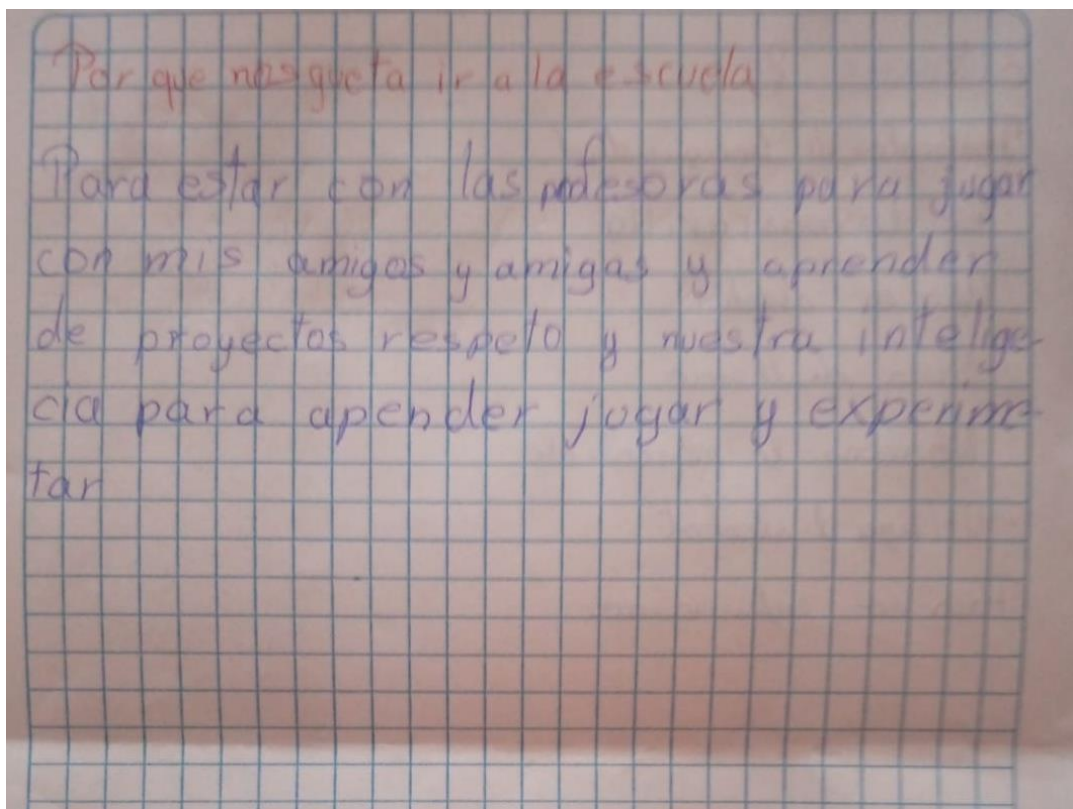 Por que nos gucta ir a la escuela
Para estar con las profesoras para jugar
con mis amigos y amigas y aprender
de proyectos respeto y nuestra intelige-
cia para apender jugar y experime-
tar